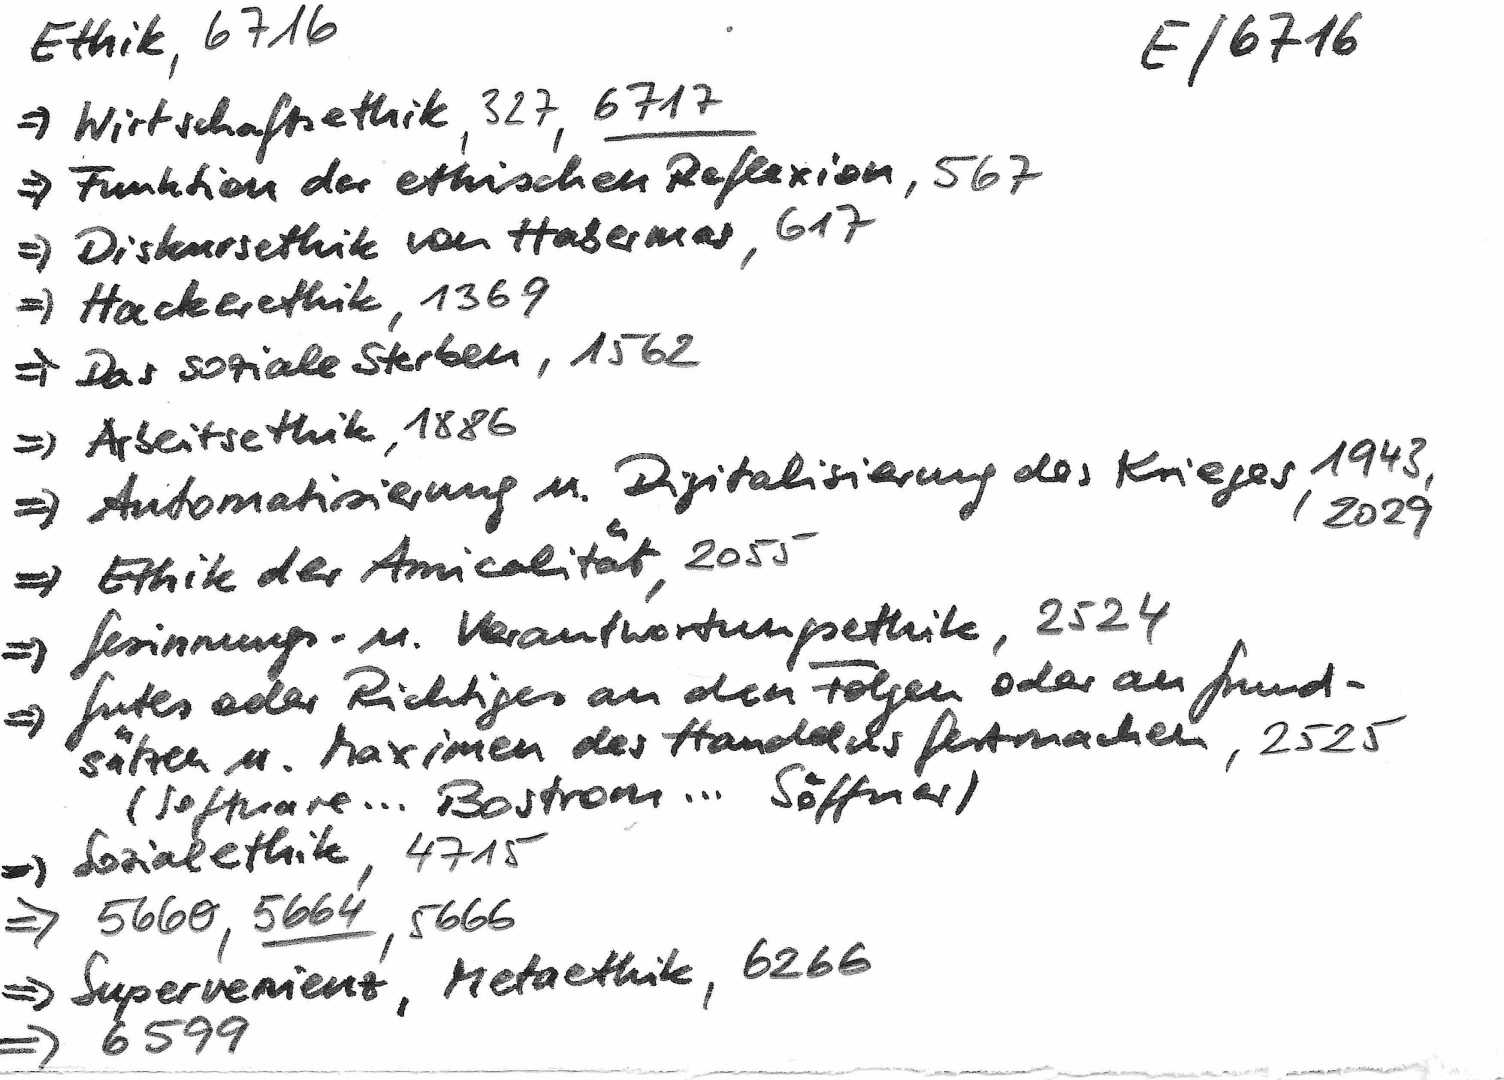 Ethik, 6716
E/6716
=> Wirtschaftsethik, 327, 6717
=> Funktion der ethischen Reflexion, 567
=> Diskursethik von Habermas, 617
=> Hackerethik, 1369
=> Das soziale Sterben, 1562
=> Arbeitsethik, 1886
=> Automatisierung u. Digitalisierung des Krieges, 1943,
2029
=> Ethik der Amicalität, 2055
=> Gesinnungs- u. Verantwortungsethik, 2524
=> Gutes oder Richtiges an den Folgen oder an Grund-
sätzen u. Maximen des Handelns festmachen, 2525
(Software... Bostrom... Söffner)
=> Sozialethik, 4715
=> 5660, 5664, 5666
=> Supervenienz, Metaethik, 6266
=> 6599